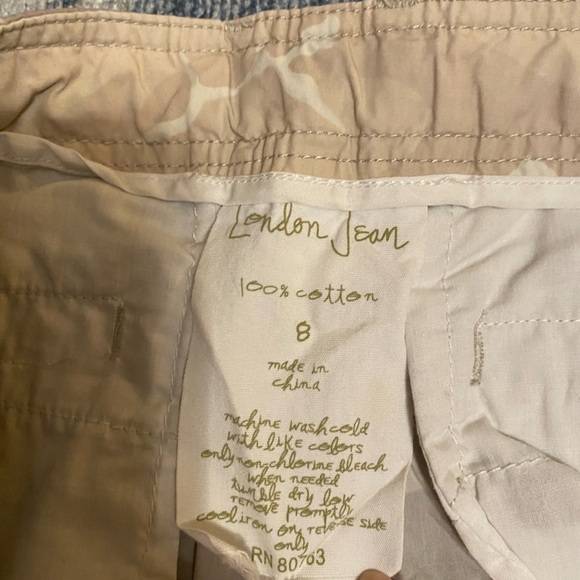 London Jean
100% cotton
8
made in
china
machine wash cold
with like colors
only non-chlorine bleach
when needed
tumble dry low
remove promptly
cool iron on reverse side
only
RN 80763